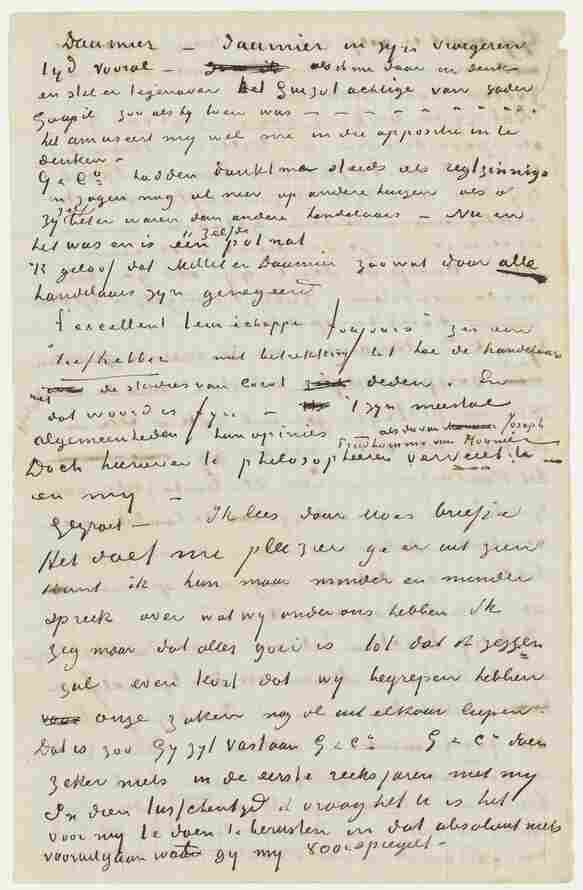 Daumier – Daumier in zyn vroegeren
tyd vooral – als ik me daar in denk
en stel er tegenover het Guizotachtige van vader
Goupil zoo als hy toen was – – – – – – – –
het amuseert my wel me in die oppositie in te
denken –
G & Co hadden dunkt me steeds als
en zagen nog al neer op andere huizen als of
zy beter waren dan andere handelaars – Nu en
het was en is één zelfde pot nat
Ik geloof dat Millet en Daumier zoowat door alle
handelaars zyn genegeerd
"excellent teméchappe toujours" zei een
"liefhebber" met betrekking tot hoe de handelaars
met de studies van Corot deden. En
dat woord is fyn – 't zyn meestal
algemeenheden hun opinies als die van Joseph
Prudhomme van Monnier
Doch hierover te philosopheeren verveelt U –
en my –
Gegroet – Ik lees daar Uw briefje
Het doet me pleizier ge er uit ziet
ik hun maar minder en minder
spreek over wat wy onder ons hebben Ik
zeg maar dat alles goed is tot dat ik zeggen
zal even kort dat wy begrepen hebben
onze zaken nog al uit elkaar liepen.
Dat is zoo Gy zyt vast aan G & Co G & Co doen
zeker niets in de eerste reeks jaren met my
In dien tusschentyd ik vraag het U is het
voor my te doen te berusten in dat absoluut niets
vooruitgaan gy my voorspiegelt –